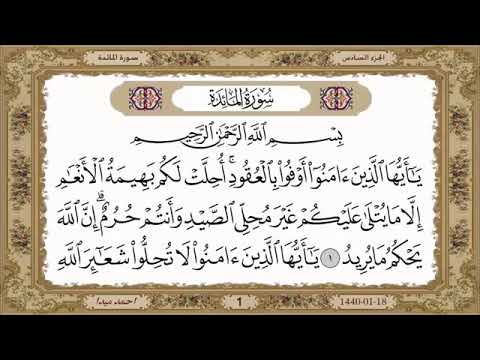 سورة المائدة
الجزء السادس
سُورَةُ المَائِدَة
بِسْمِ اللَّهِ الرَّحْمَٰنِ الرَّحِيمِ
يَا أَيُّهَا الَّذِينَ ءَامَنُوٓا۟ أَوْفُوا۟ بِالْعُقُودِ ۚ أُحِلَّتْ لَكُم بَهِيمَةُ الْأَنْعَٰمِ
إِلَّا مَا يُتْلَىٰ عَلَيْكُمْ غَيْرَ مُحِلِّى الصَّيْدِ وَأَنتُمْ حُرُمٌ ۗ إِنَّ اللَّهَ
يَحْكُمُ مَا يُرِيدُ ۝١ يَٰٓأَيُّهَا الَّذِينَ ءَامَنُوا۟ لَا تُحِلُّوا۟ شَعَٰٓئِرَ اللَّهِ
1440-01-18
1